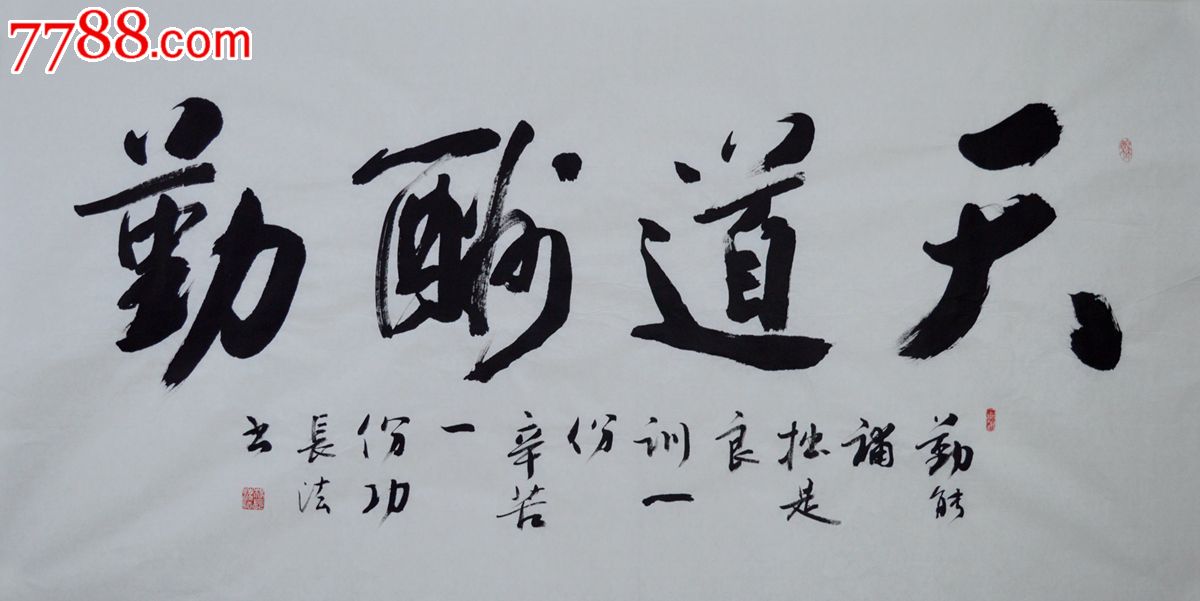 7788.com
天道酬勤
勤能
補
拙是
良
訓一
份
辛苦
一
份功
長法
书